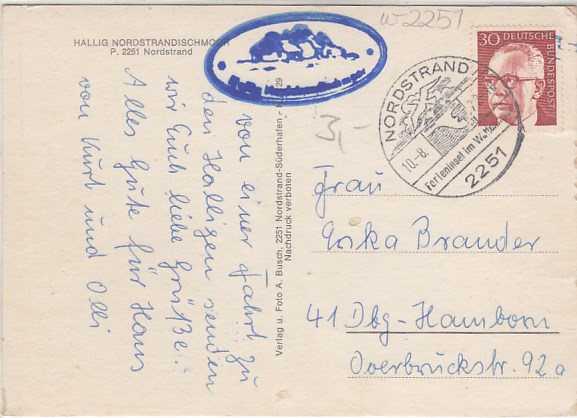 HALLIG NORDSTRANDISCHMOOR
P. 2251 Nordstrand
w-2251
30 DEUTSCHE
BUNDESPOST
NORDSTRAND
10.-8.
Ferieninsel im
2251
3,-
Von einer Fahrt zu
den Halligen senden
wir Euch liebe Grüße.
Alles Gute für Hans
von Kurt und Olli
Verlag u. Foto A. Busch, 2251 Nordstrand-Süderhafen - 29
Nachdruck verboten
Frau
Erika Brander
41 Dbg-Hamborn
Overbruckstr. 92a